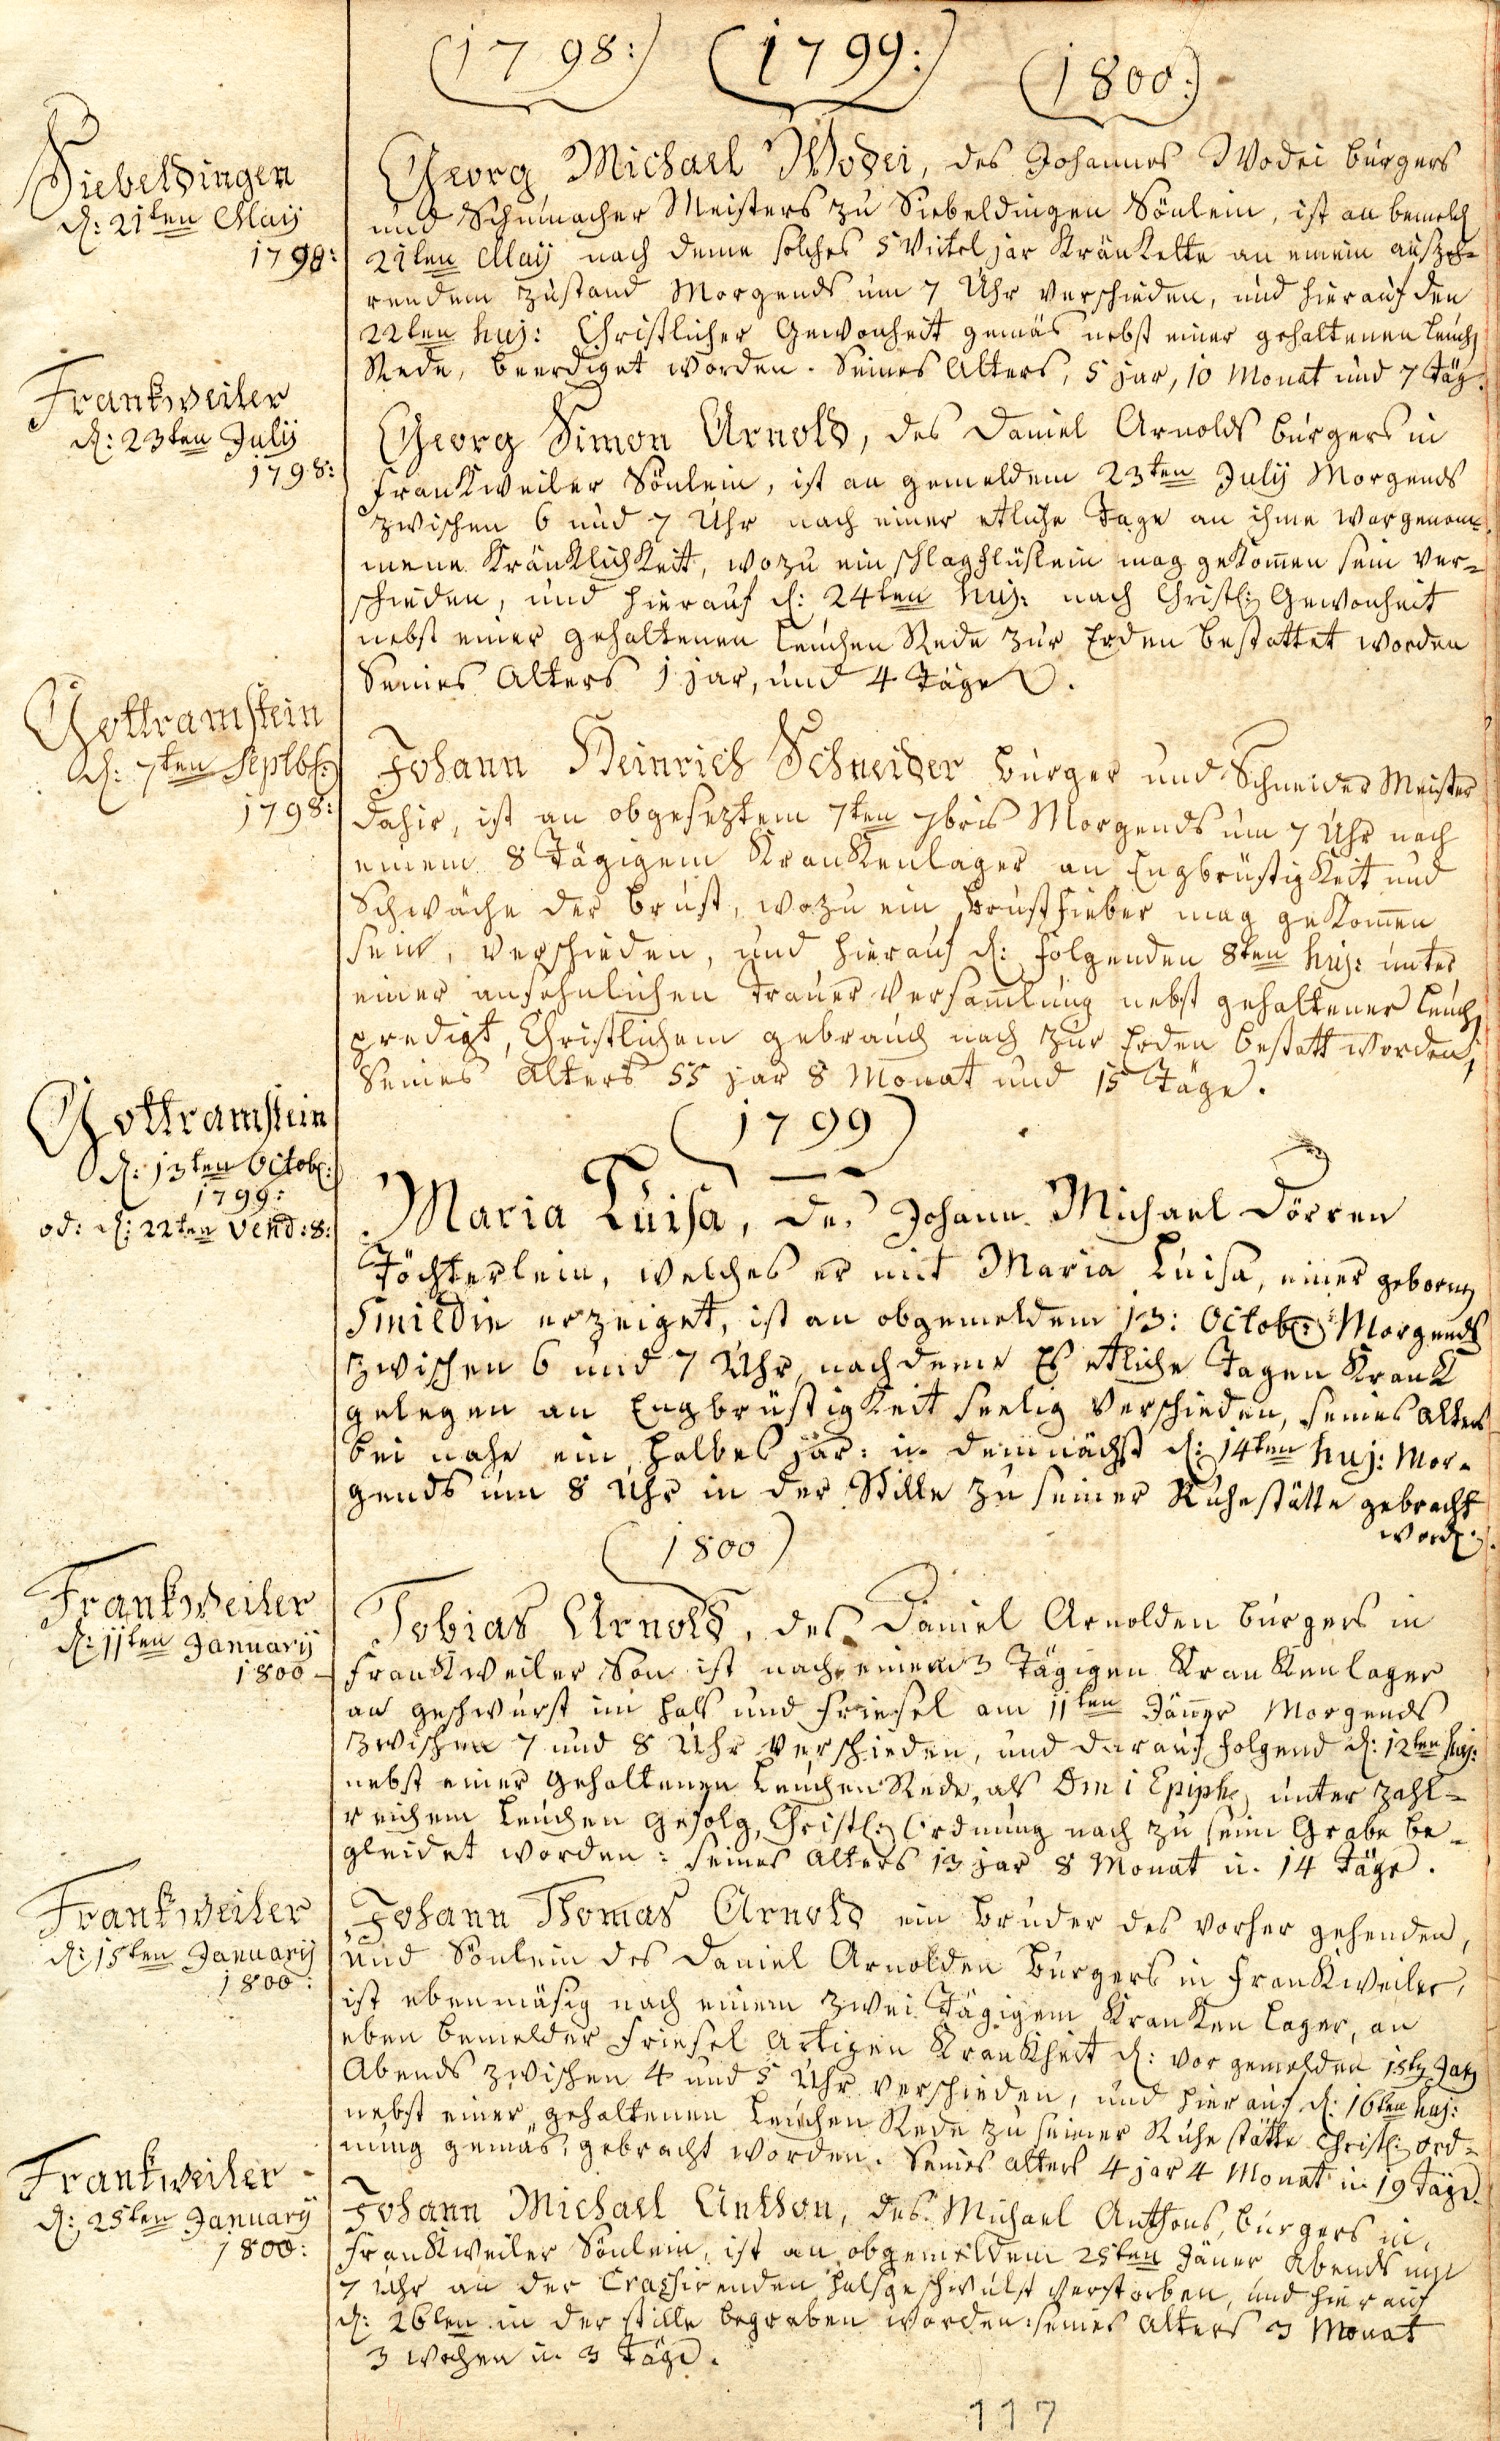 (1798:) (1799:) (1800:)
Siebeldingen
d: 21ten Maij
1798:
Georg Michael Wodei, des Johannes Wodei burgers
und Schumacher Meisters zu Siebeldingen Sönlein, ist an bemelt
21ten Maij nach deme solches 5 Virtel jar Kränkelte an einem auszeh-
rendem Zustand Morgends um 7 Uhr verschieden, und hierauf den
22ten huj: Christlicher Gewonheit gemäs nebst einer gehaltenen Leich
Rede, beerdiget worden. Seines Alters, 5 jar, 10 Monat und 7 Täg.
Frankweiler
d: 23ten Julij
1798:
Georg Simon Arnold, des Daniel Arnolds burgers in
Frankweiler Sönlein, ist an gemeldem 23ten Julij Morgends
zwischen 6 und 7 Uhr nach einer etliche Tage an ihme wargenom-
mene Kränklichkeit, wozu ein schlagflüslein mag gekomen sein ver-
schieden, und hierauf d: 24ten huj: nach Christl: Gewonheit
nebst einer gehaltenen Leichen Rede zur Erden bestattet worden
Seines Alters 1 jar, und 4 Täge.
Gottramstein
d: 7ten Septbr:
1798:
Johann Heinrich Schneider burger und Schneider Meister
dahir, ist an obgeseztem 7ten 7bris Morgends um 7 Uhr nach
einem 8 Tägigem Krankenlager an Engbrüstigkeit und
Schwäche der brust, wozu ein brustfieber mag gekomen
sein, verschieden, und hierauf d: folgenden 8ten huj: unter
einer ansehnlichen Trauer Versamlung nebst gehaltener Leich
predigt, Christlichem gebrauch nach zur Erden bestatt worden,
Seines Alters 55 jar 8 Monat und 15 Täge.
(1799)
Gottramstein
d: 13ten Octob:
1799:
od: d: 22ten Vend: 8:
Maria Luisa, des Johann Michael Dörren
Töchterlein, welches er mit Maria Luisa, einer geborn
Smildin erzeiget, ist an obgemeldem 13: Octob: Morgends
zwischen 6 und 7 Uhr nach deme Es etliche Tagen Krank
gelegen an Engbrüstigkeit seelig verschieden, seines Alters
bei nahe ein halbes jar: u. demnächst d: 14ten huj: Mor-
gends um 8 Uhr in der Stille zu seiner Ruhestätte gebracht
word:
(1800)
Frankweiler
d: 11ten Januarij
1800
Tobias Arnold, des Daniel Arnolden burgers in
Frankweiler Son ist nach einem 3 Tägigen Krankenlager
an geschwurst im hals und Friesel am 11ten Jäner Morgends
zwischen 7 und 8 Uhr verschieden, und darauf folgend d: 12ten huj:
nebst einer gehaltenen Leichen Rede, als Dm 1 Epiph, unter zahl-
reichem Leichen gefolg, Christl: Ordnung nach zu seim Grabe be-
gleidet worden: seines Alters 13 jar 8 Monat u. 14 Täge.
Frankweiler
d: 15ten Januarij
1800:
Johann Thomas Arnold ein bruder des vorher gehenden,
und Sönlein des Daniel Arnolden burgers in Frankweiler,
ist ebenmäsig nach einem zwei Tägigem Kranken Lager, an
eben bemelder Friesel Artigen Krankheit d: vor gemelden 15t Jan
Abends zwischen 4 und 5 Uhr verschieden, und hierauf d: 16ten huj:
nebst einer gehaltenen Leichen Rede zu seiner Ruhe stätte Christl: Ord-
nung gemäs, gebracht worden. Seines Alters 4 jar 4 Monat u. 19 Täge.
Frankweiler
d: 25ten Januarij
1800:
Johann Michael Anthon, des Michael Anthons, burgers in
Frankweiler Sönlein, ist an obgemeldem 25ten Jäner Abends um
7 Uhr an der Crassirenden halsgeschwulst verstorben, und hierauf
d: 26ten in der stille begraben worden: seines Alters 3 Monat
3 Wochen u. 3 Täge.
117